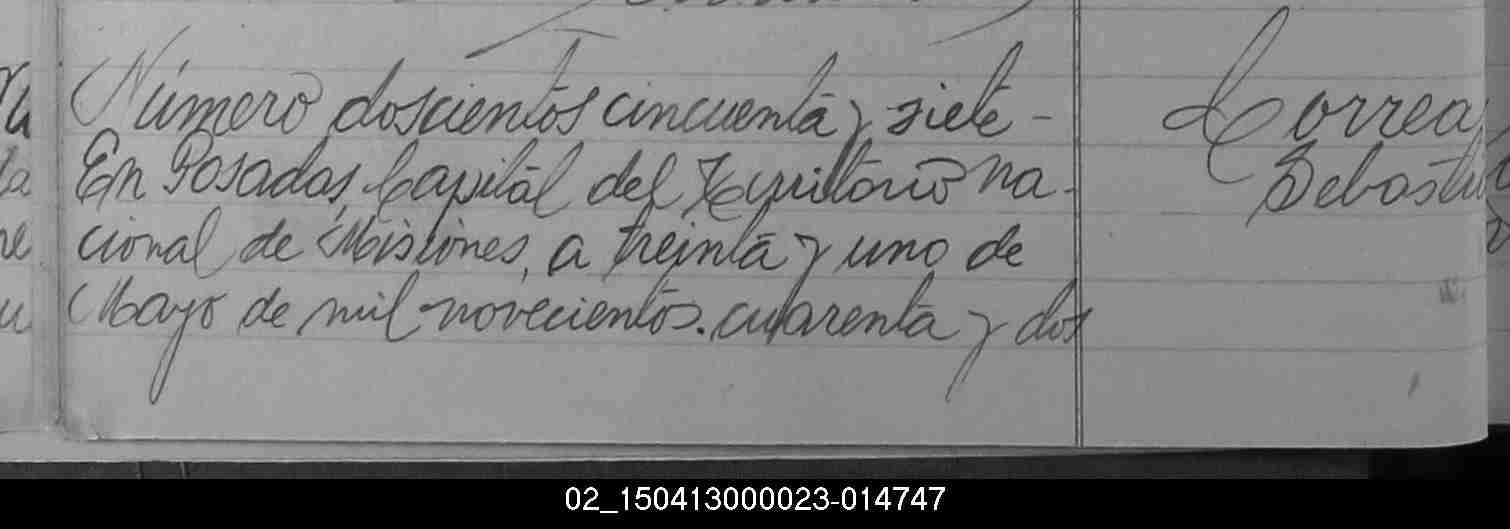 Número doscientos cincuenta y siete -
En Posadas, Capital del Territorio Na-
cional de Misiones, a treinta y uno de
Mayo de mil novecientos cuarenta y dos
Correa,
Sebasti
02_150413000023-014747